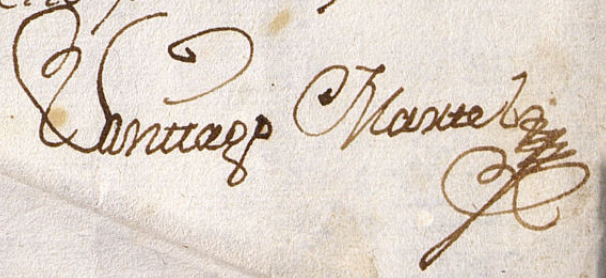 Santiago Martel